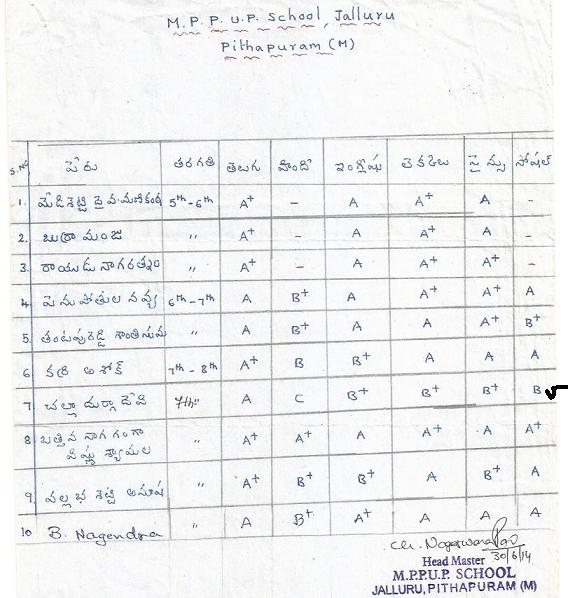 M.P.P.U.P. School, Jalluru
Pithapuram (M)
S.No పేరు తరగతి తెలుగు హిందీ ఇంగ్లీషు లెక్కలు సైన్సు సోషల్
1. మేడిశెట్టి దైవ మణికంఠ 5th-6th A+ - A A+ A -
2. బుర్రా మంజు " A+ - A A+ A -
3. రాయుడు నాగరత్నం " A+ - A A+ A+ -
4. పెనుపోతుల నవ్య 6th-7th A B+ A A+ A+ A
5. శాంతి " A B+ A A A+ B+
6 కర్రి అశోక్ 7th-8th A+ B B+ A A A
7 చల్లా దుర్గాదేవి 7th " A C B+ B+ B+ B ✓
8 నాగ గంగా " A+ A+ A A+ A A+
విష్ణు శ్యామల
9. వల్లభశెట్టి అనూష " A+ B+ B+ A B+ A
10 B. Nagendra " A B+ A+ A A A
Ch. Nageswara Rao
30/6/14
Head Master
M.P.P.U.P. SCHOOL
JALLURU, PITHAPURAM (M)